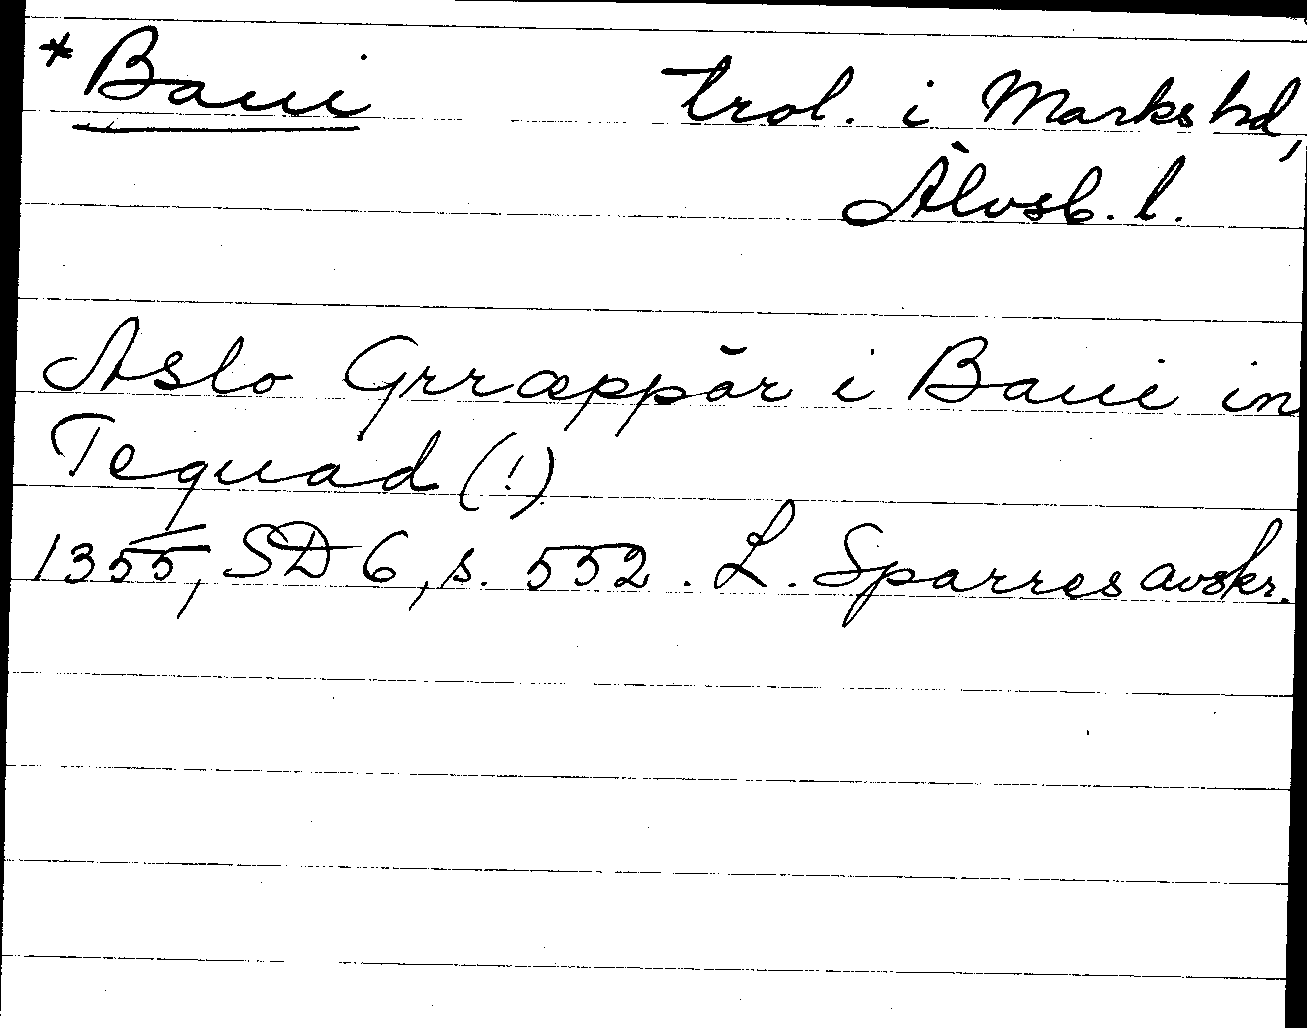 * Baui trol. i Marks hd,
Älvsb. l.
Aslo Grræppār i Baui in
Tequad (!)
1355, SD 6, s. 552. L. Sparres avskr.